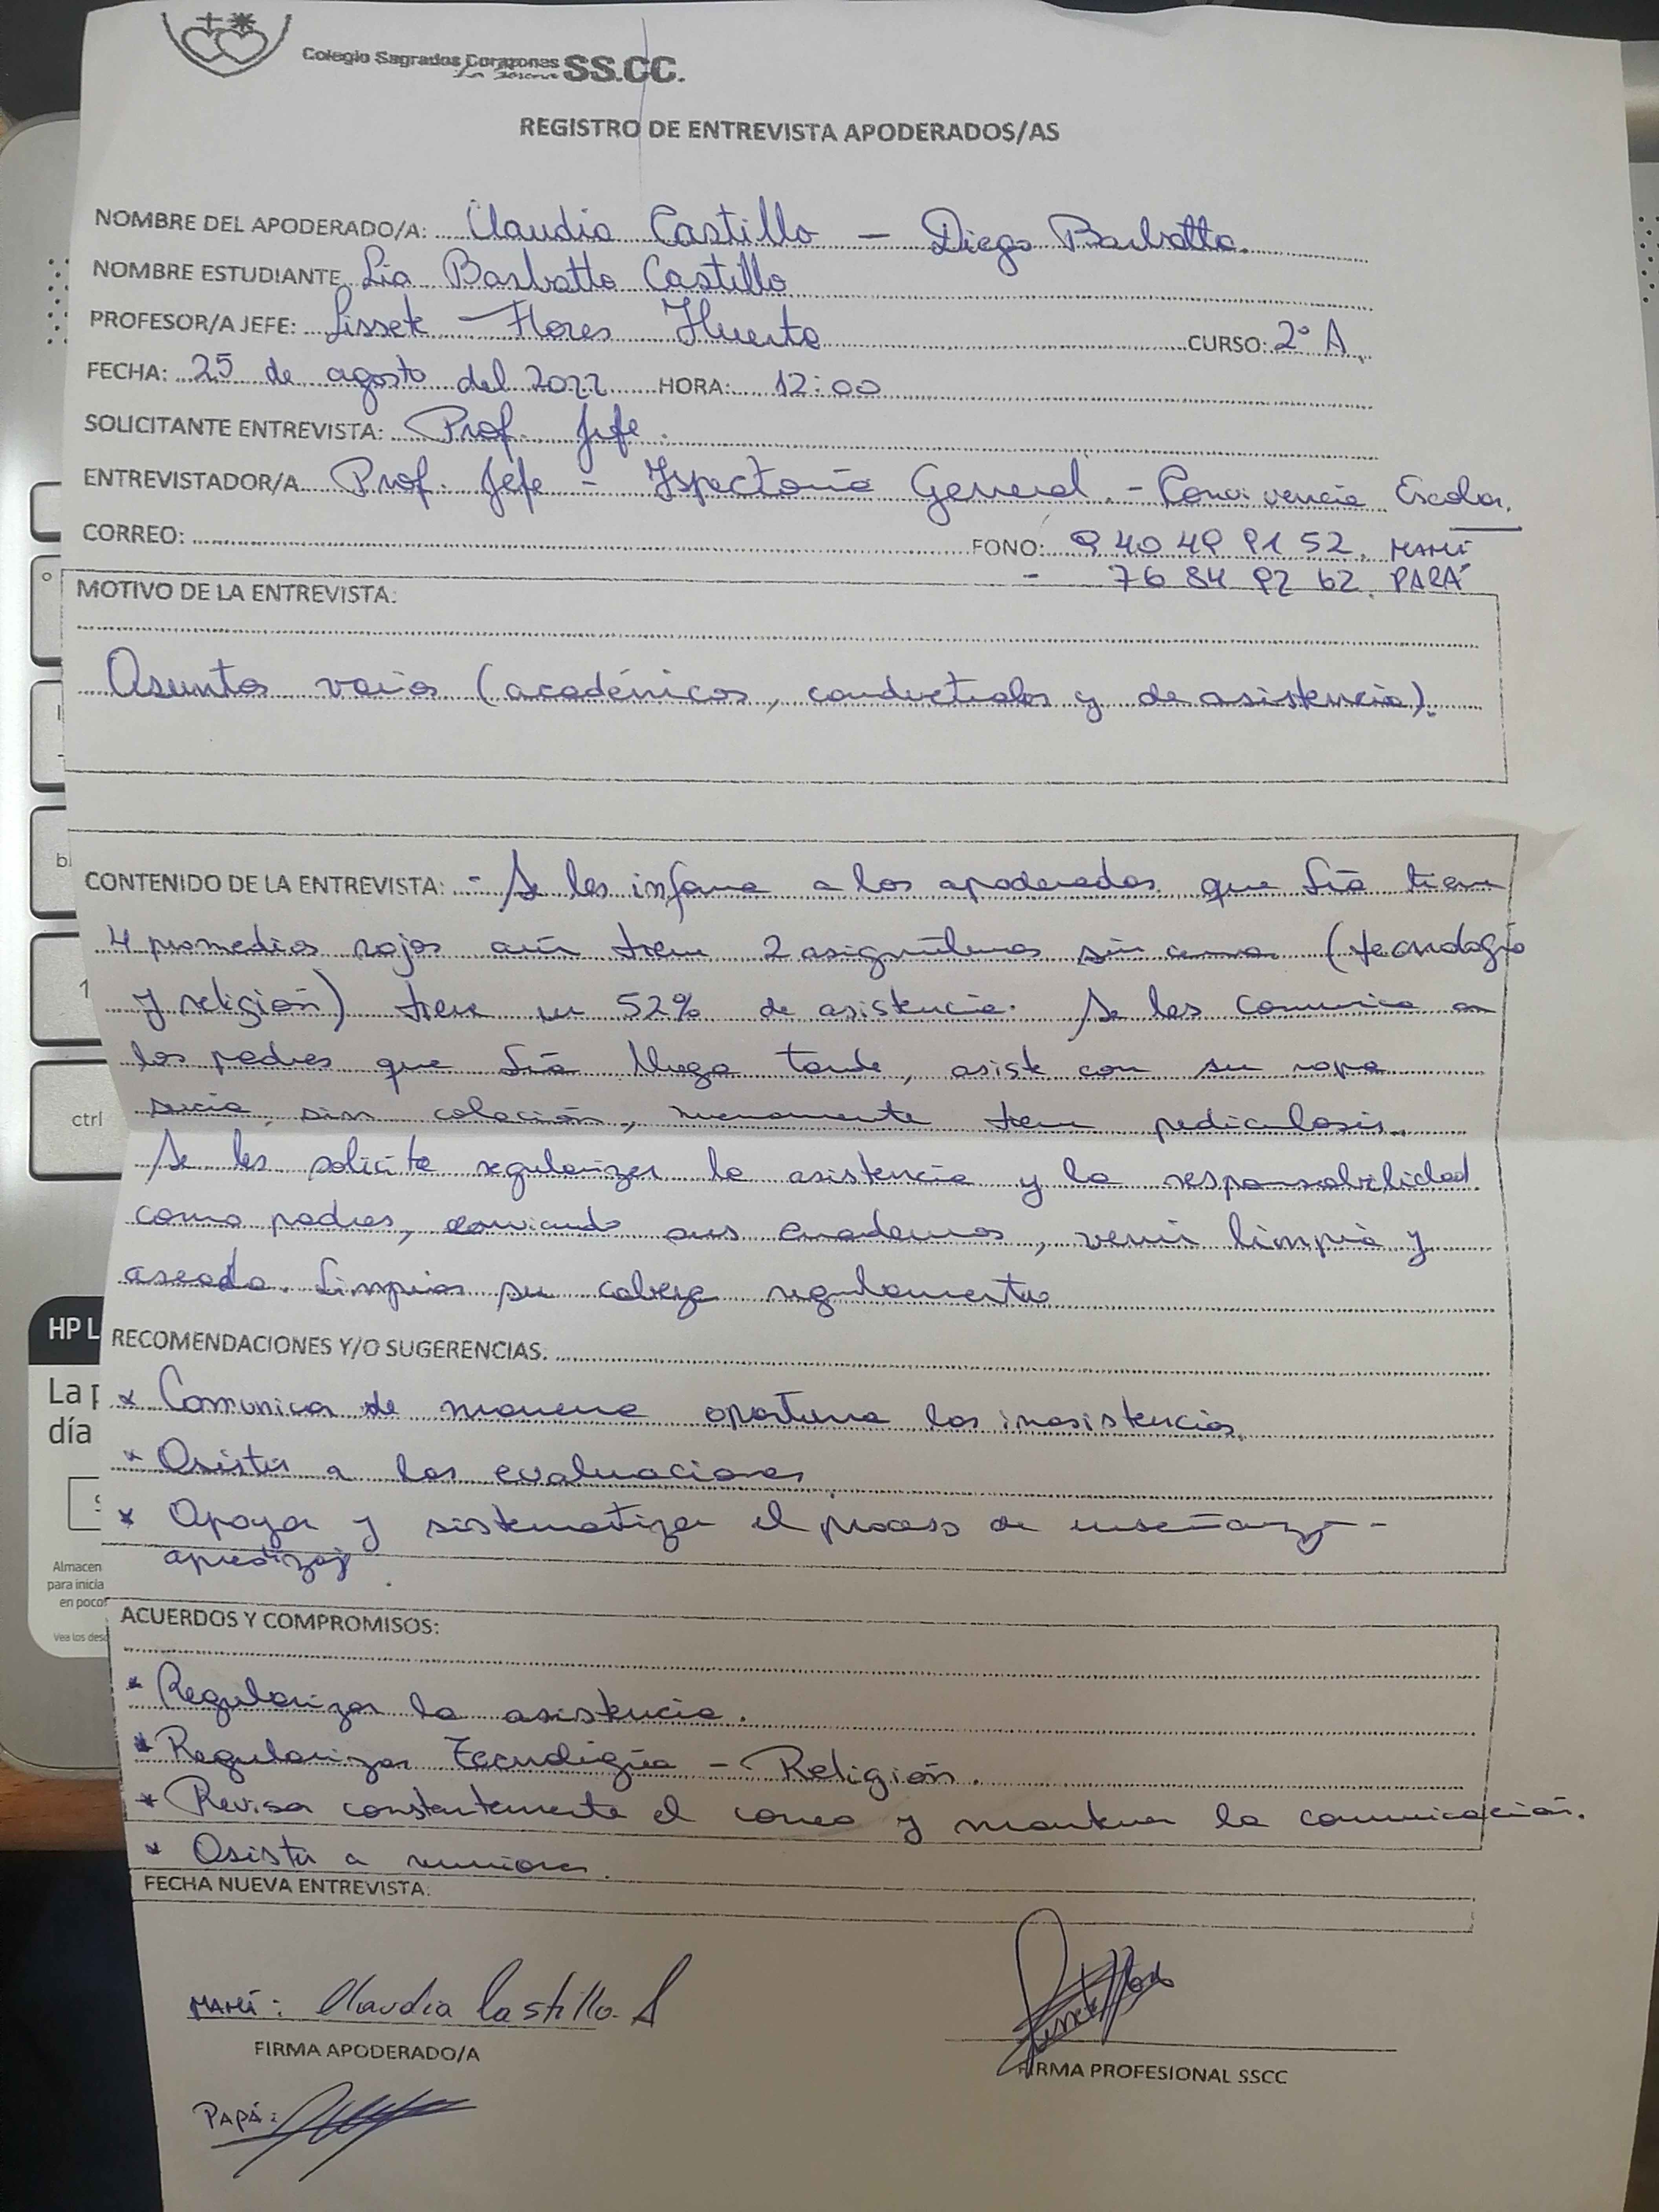 Colegio Sagrados Corazones SS.CC.
La Serena
REGISTRO DE ENTREVISTA APODERADOS/AS
NOMBRE DEL APODERADO/A: Claudia Castillo - Diego Barbatto.
NOMBRE ESTUDIANTE Lia Barbatto Castillo
PROFESOR/A JEFE: Lissete Flores Huerta CURSO: 2° A.
FECHA: 25 de agosto del 2022 HORA: 12:00
SOLICITANTE ENTREVISTA: Prof. Jefe.
ENTREVISTADOR/A Prof. Jefe - Ispectoria General. - Convivencia Escolar.
CORREO: FONO: 9 40 49 91 52. MAMÍ
- 76 84 92 62. PAPÁ
MOTIVO DE LA ENTREVISTA:
Asuntos varios (académicos, conductuales y de asistencia).
CONTENIDO DE LA ENTREVISTA: - Se les informa a los apoderados que Lia tiene
4 promedios rojos aún tiene 2 asignaturas sin cerrar (tecnologia
y religión) tiene un 52% de asistencia. Se les comunica a
los padres que Lia llega tarde, asiste con su ropa
sucia, sin colación, nuevamente tiene pediculosis.
Se les solicita regularizar la asistencia y la responsabilidad
como padres, enviando sus cuadernos, venir limpia y
aseada. Limpiar su cabeza regularmente
RECOMENDACIONES Y/O SUGERENCIAS.
* Comunicar de manera oportuna las inasistencias.
* Asistir a las evaluaciones
* Apoyar y sistematizar el proceso de enseñanza -
aprendizaje
ACUERDOS Y COMPROMISOS:
* Regularizar la asistencia.
* Regularizar Tecnología - Religión.
* Revisar constantemente el correo y mantener la comunicación.
* Asistir a reuniones.
FECHA NUEVA ENTREVISTA:
MAMÍ: Claudia Castillo. A
FIRMA APODERADO/A
FIRMA PROFESIONAL SSCC
PAPÁ:
ctrl
HP L
La p
día
Almacen
para inicia
en pocos
Vea los desc